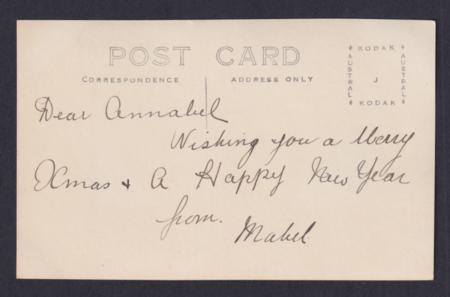 POST CARD
CORRESPONDENCE ADDRESS ONLY
KODAK
AUSTRAL J AUSTRAL
KODAK
Dear Annabel
Wishing you a Merry
Xmas & A Happy New Year
from.
Mabel